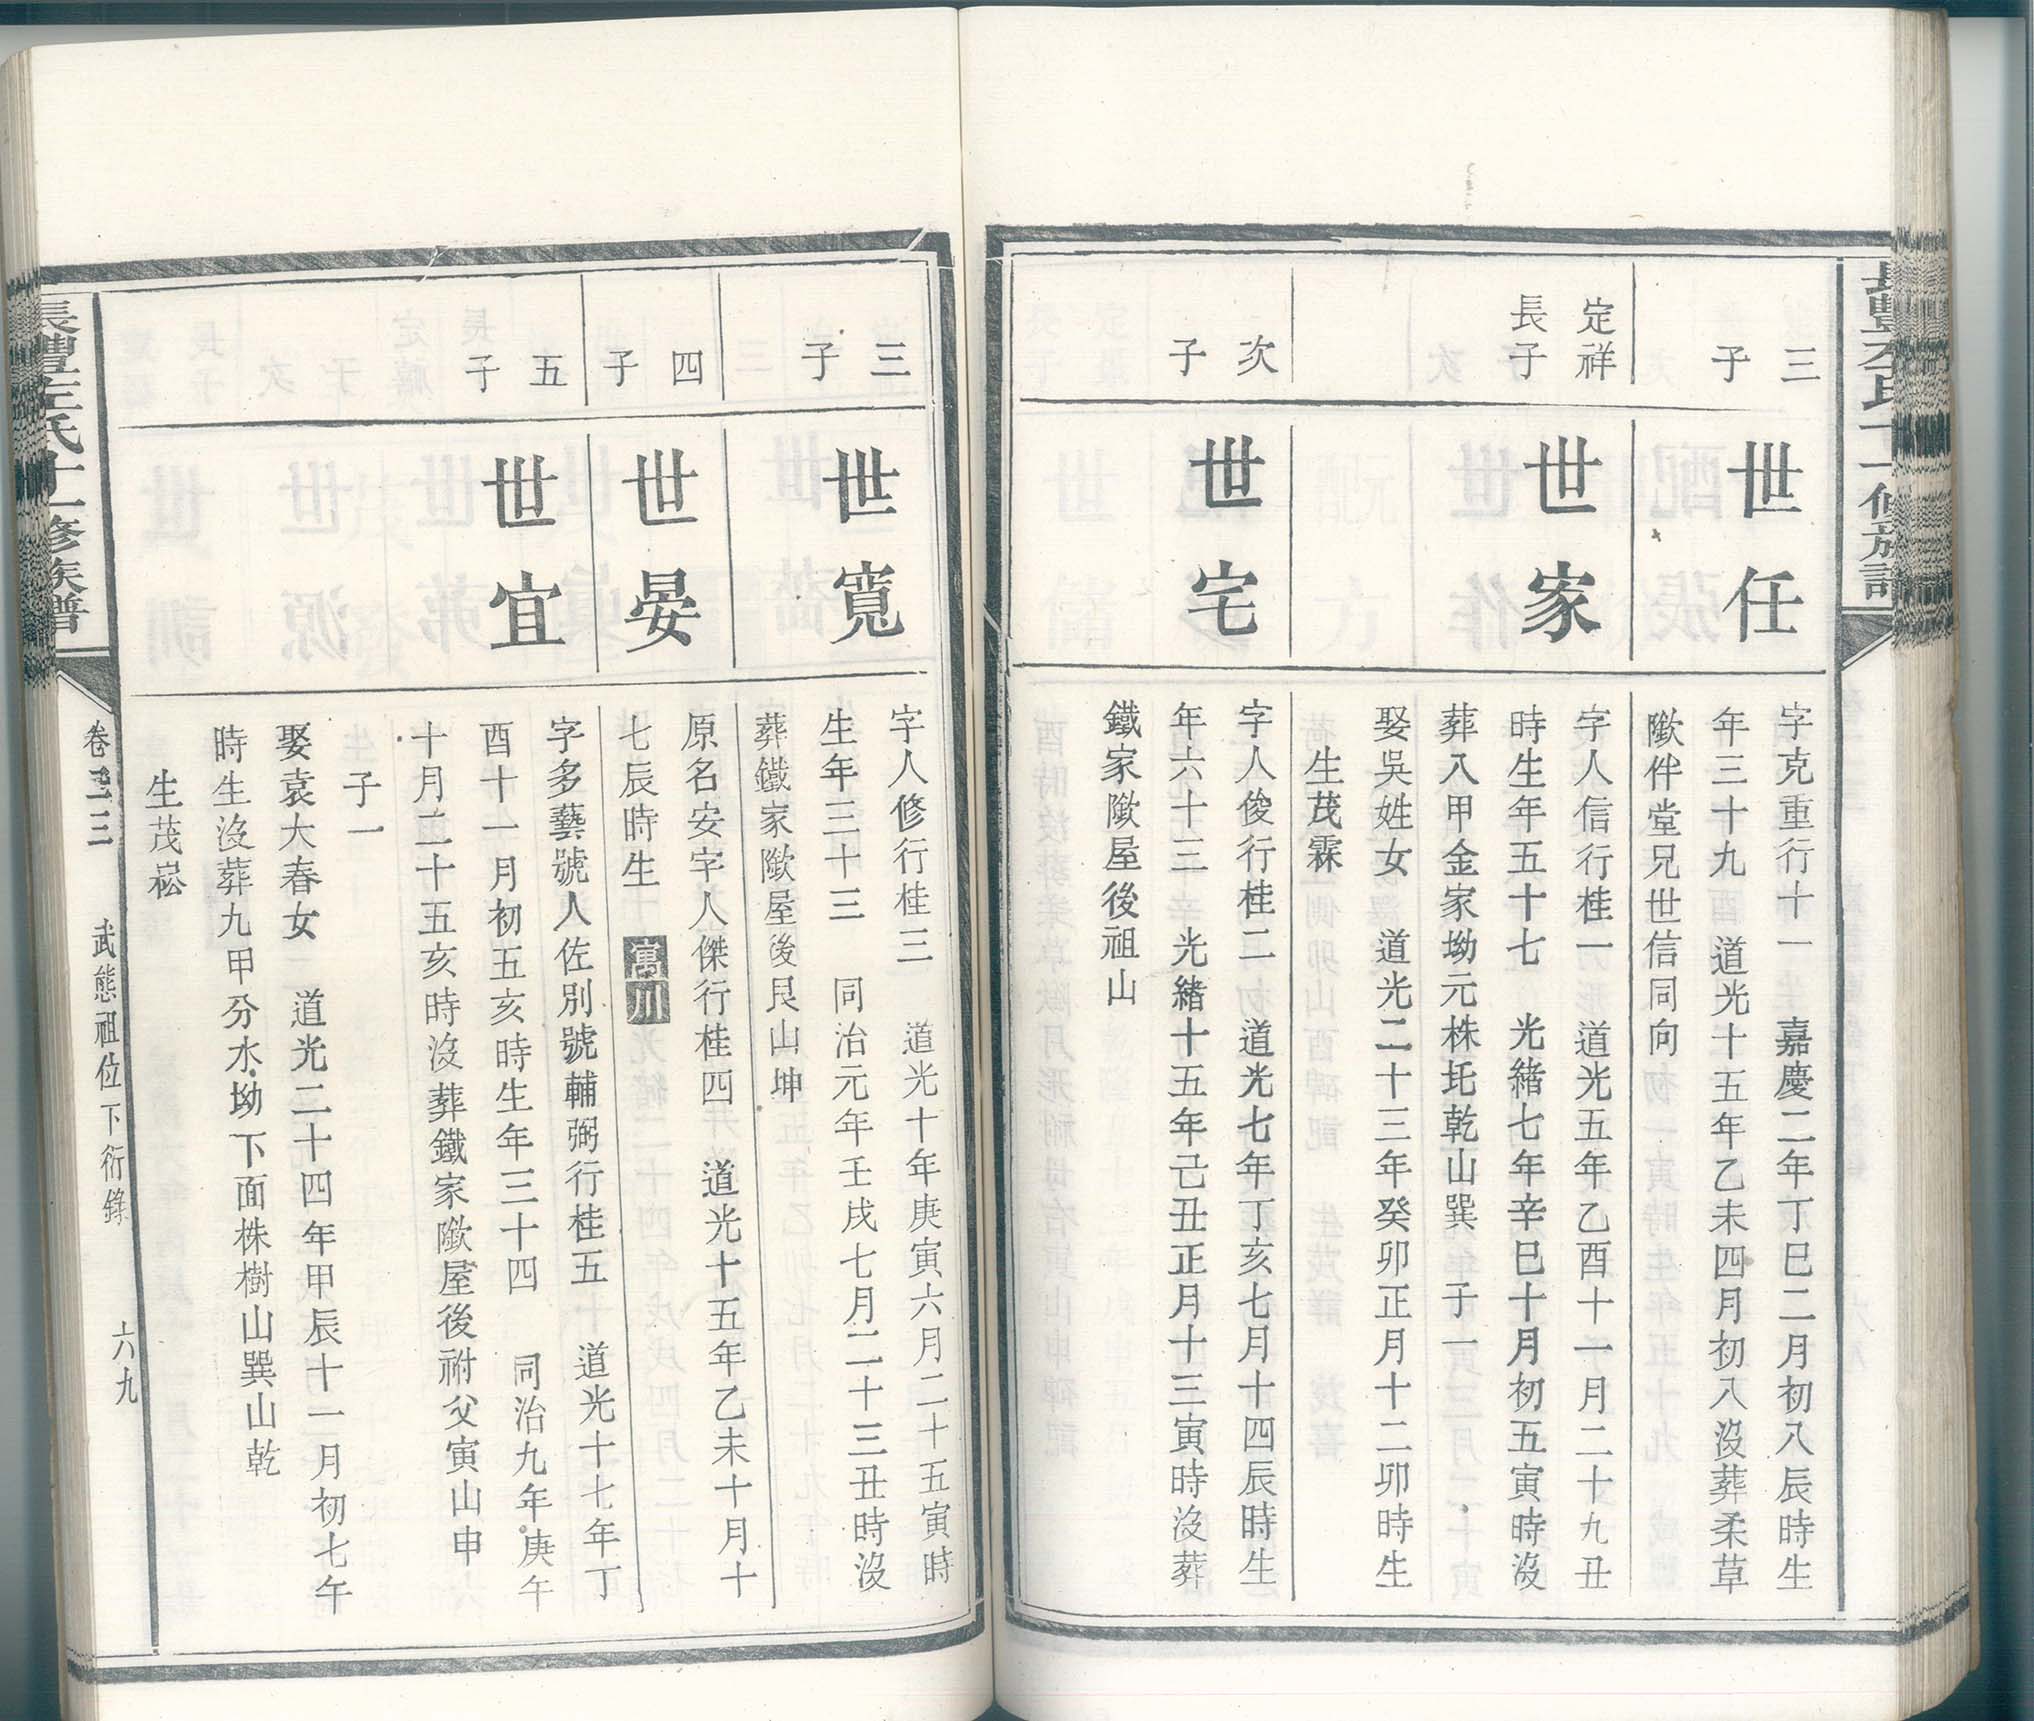 三
子
世任
字克重行十一　嘉慶二年丁巳二月初八辰時生
年三十九　道光十五年乙未四月初八沒葬柔草
歞伴堂兄世信同向
定祥
長子
世家
字人信行桂一　道光五年乙酉十一月二十九丑
時生年五十七　光緒七年辛巳十月初五寅時沒
葬八甲金家坳元株圫乾山巽　子一
娶吳姓女　道光二十三年癸卯正月十二卯時生
生茂霖
次
子
世宅
字人俊行桂二　道光七年丁亥七月十四辰時生
年六十三　光緒十五年己丑正月十三寅時沒葬
鐵家歞屋後祖山
三
子
世寬
字人修行桂三　道光十年庚寅六月二十五寅時
生年三十三　同治元年壬戌七月二十三丑時沒
葬鐵家歞屋後艮山坤
四
子
世晏
原名安字人傑行桂四　道光十五年乙未十月十
七辰時生　寓川
五
子
世宜
字多藝號人佐別號輔弼行桂五　道光十七年丁
酉十一月初五亥時生年三十四　同治九年庚午
十月二十五亥時沒葬鐵家歞屋後祔父寅山申
子一
娶袁大春女　道光二十四年甲辰十一月初七午
時生沒葬九甲分水坳下面株樹山巽山乾
生茂崧
長豐左氏十一修族譜
武態祖位下衍錄
六九